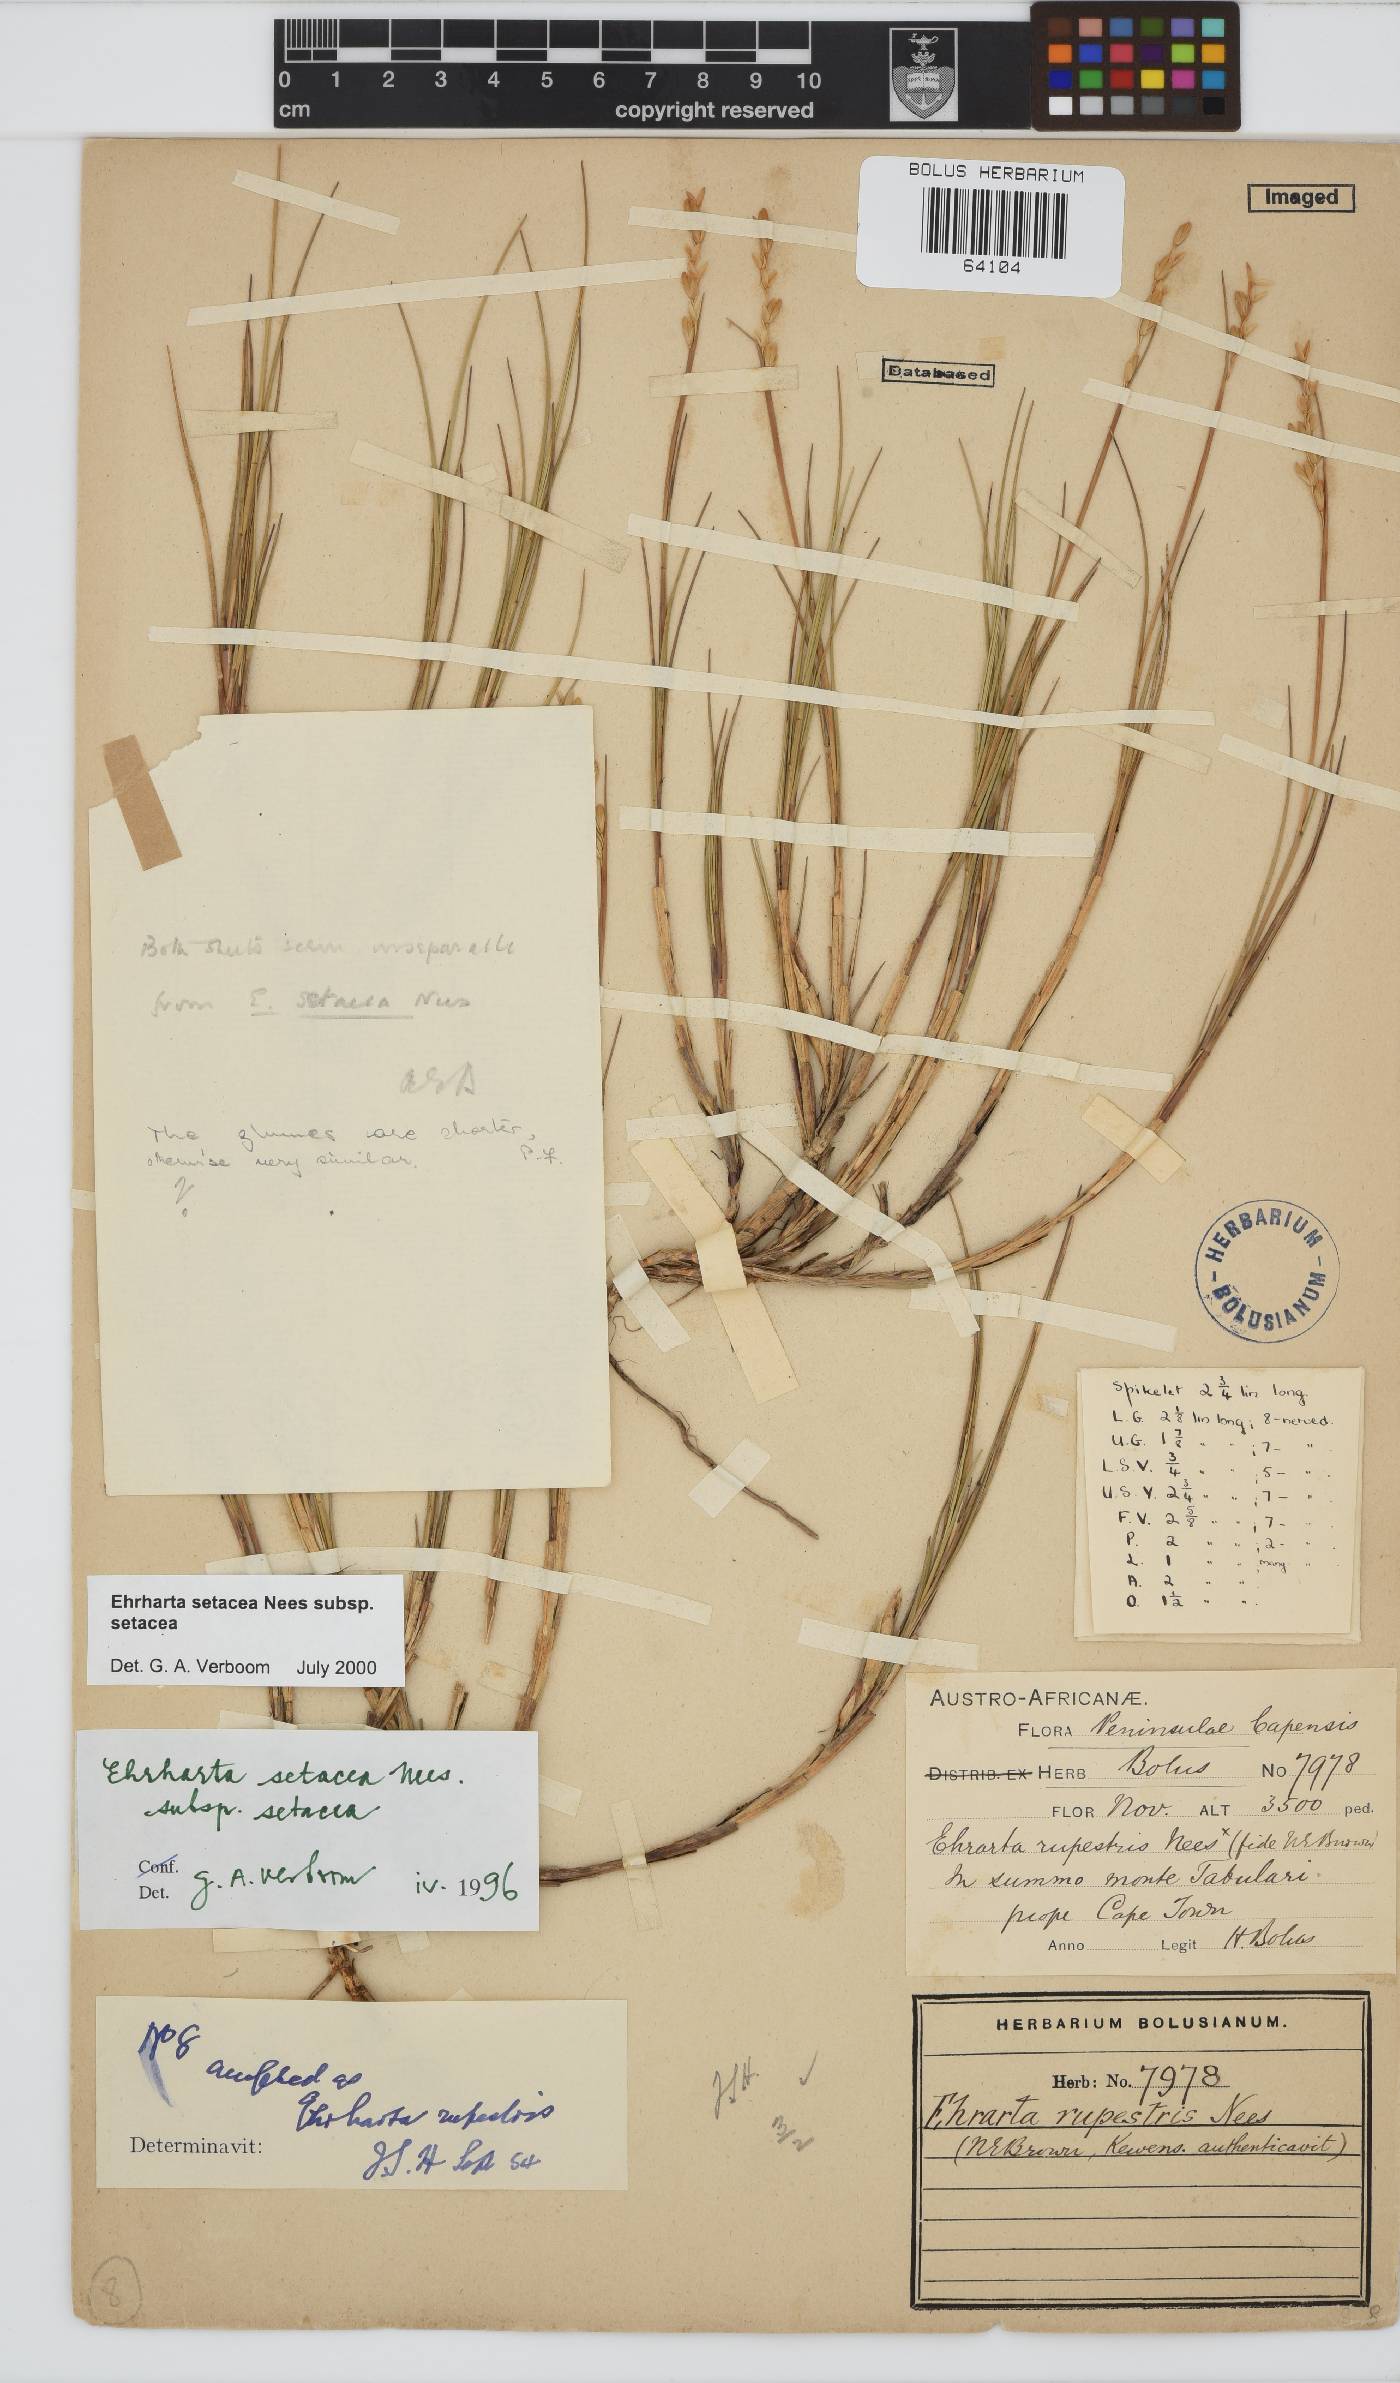 0 1 2 3 4 5 6 7 8 9 10
cm
copyright reserved
BOLUS HERBARIUM
64104
Imaged
Databased
Both sheets seem inseparable
from E. setacea Nees
The glumes are shorter,
otherwise very similar. P.F.
?
HERBARIUM
BOLUSIANUM
Spikelet 2 3/4 lin long.
L.G. 2 1/8 lin long; 8-nerved.
U.G. 1 7/8 " " ; 7- " .
L.S.V. 3/4 " " ; 5- " .
U.S.V. 2 3/4 " " ; 7- " .
F.V. 2 5/8 " " ; 7- " .
P. 2 " " ; 2- " .
L. 1 " " ; many " .
A. 2 " " .
O. 1 1/2 " " .
Ehrharta setacea Nees subsp.
setacea
Det. G. A. Verboom July 2000
Ehrharta setacea Nees.
subsp. setacea
Conf.
Det. G. A. Verboom iv. 1996
AUSTRO-AFRICANÆ.
FLORA Peninsulae Capensis
DISTRIB. EX HERB Bolus No 7978
FLOR Nov. ALT 3500 ped.
Ehrarta rupestris Nees x (fide N.E.Brown)
In summo monte Tabulari
prope Cape Town
Anno Legit H. Bolus
No 8
accepted as
Ehrharta rupestris
Determinavit: J.S.H Sept 54
J.S.H. ✓
HERBARIUM BOLUSIANUM.
Herb: No. 7978
Ehrarta rupestris Nees
(N.E.Brown, Kewens. authenticavit)
8